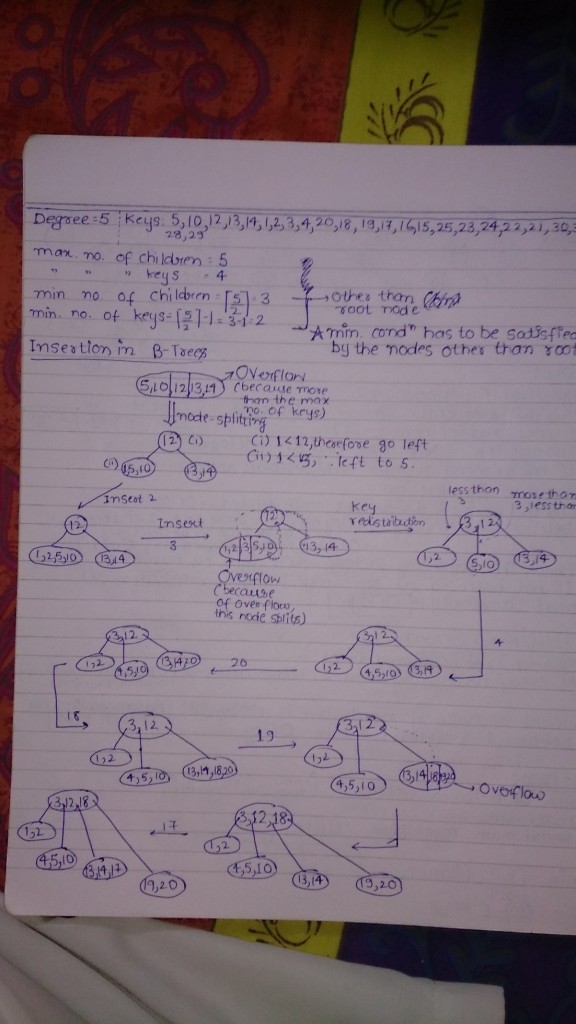 Degree=5 Keys: 5,10,12,13,14,1,2,3,4,20,18,19,17,16,15,25,23,24,22,21,30,
28,29
max. no. of children = 5
" " " keys = 4
min no. of children = ⌈5/2⌉ = 3
min. no. of keys = ⌈5/2⌉-1 = 3-1 = 2
→ other than
root node
* min. condⁿ has to be satisfied
by the nodes other than root
Insertion in B-Trees
5,10|12|13,14
Overflow
(because more
than the max
no. of keys)
node-splitting
12 (i)
(i) 1<12, therefore go left
(ii) 1<5, ∴ left to 5.
(ii) 1,5,10
13,14
Insert 2
12
1,2,5,10
13,14
Insert
3
12
1,2,3,5,10
13,14
Overflow
(because
of overflow,
this node splits)
Key
redistribution
less than
3
more than
3, less than
3,12
1,2
5,10
13,14
4
3,12
1,2
4,5,10
13,14
20
3,12
1,2
4,5,10
13,14,20
18
3,12
1,2
4,5,10
13,14,18,20
19
3,12
1,2
4,5,10
13,14,18,19,20
Overflow
3,12,18
1,2
4,5,10
13,14
19,20
17
3,12,18
1,2
4,5,10
13,14,17
19,20